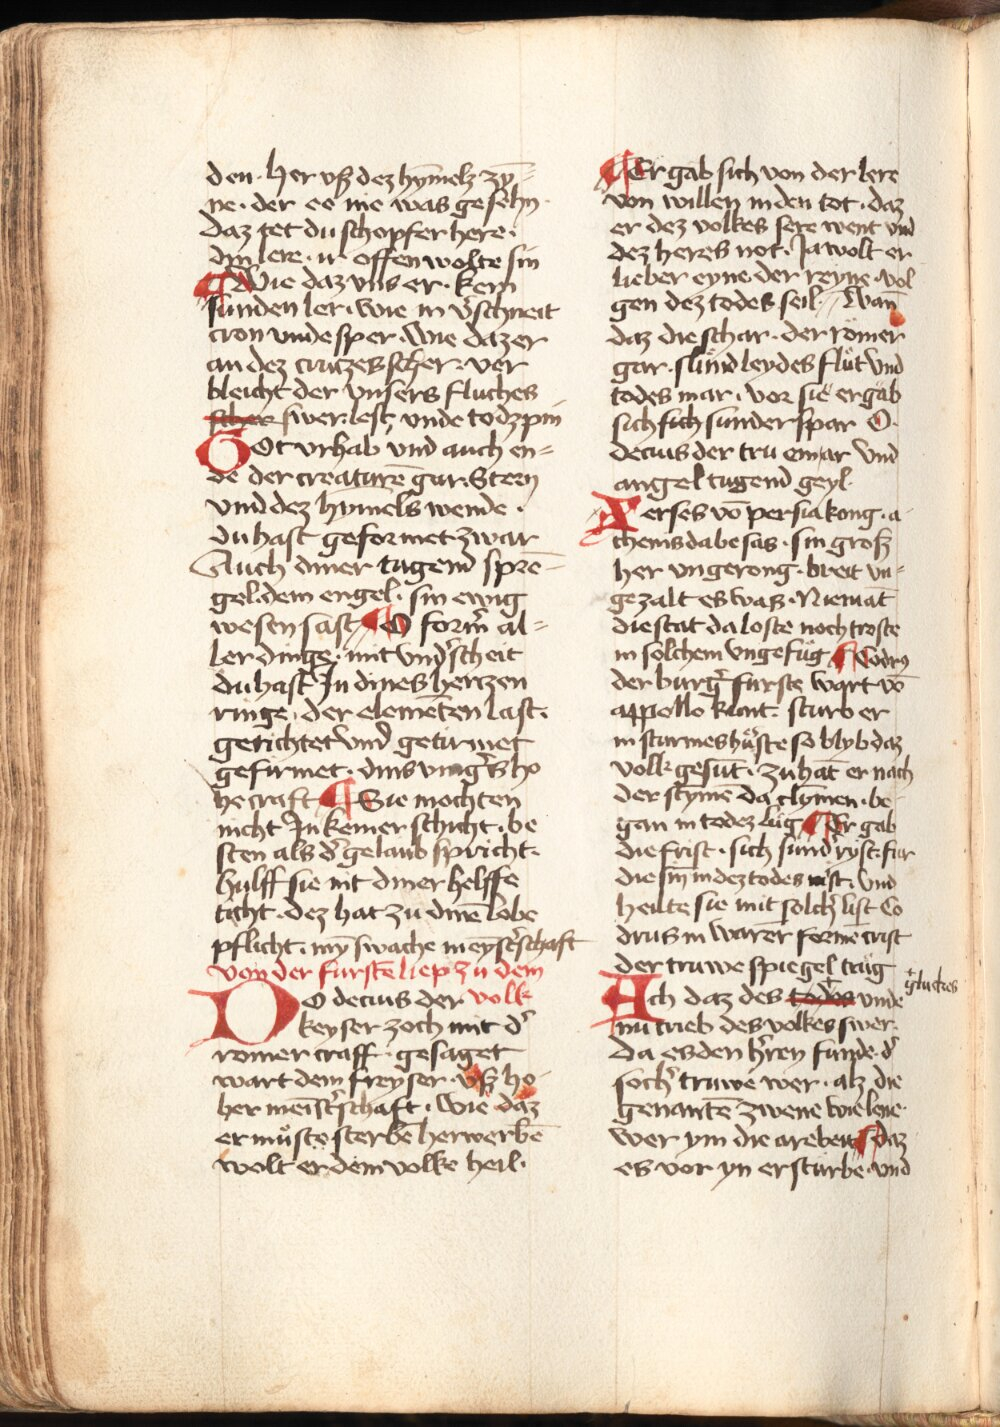 den. her vß dez hȳmelz zȳ=
ne. der ee nie was gesehn.
daz tet du schopfer here.
din lere. ir offen wolte sin
¶ Wie daz vns er. kern
sunden ler. wie in v̓schneit
cron vnde sper. Wie daz er
an dez crutzes scher. ver
bleicht der vnsers fluches
scher swer. lest, vnde todz pin
Got vrhab vnd auch en=
de der creaturē gar. Stern
vnd dez hymels wende.
du hast geformet zwar
Auch diner tugend sprē=
gel. dem engel. sin ewig
wesen sast ¶ O form̄ al=
ler dinge. mit vnd̓scheit
du hast Jn dines hertzen
ringe. der elemēten last.
getichtet vnd getirmet
gefirmet. dins ho
he craft ¶ Sie mochten
nicht Jn keiner schicht. be
sten als d̓ gelaub spricht.
hulff sie nit diner helffe
ticht. dez hat zu dinē lobe
pflicht. mȳ swache meyst̓schaft
von der furstē liep zu dem
Do decius der volk
keyser zoch mit d̓
romer craff. gesaget
wart dem freyser. vß ho=
her meist̓schaft. Wie daz
er muͤste sterbē herwerbē
wolt er dem volke heil.
¶ Er gab sich von der lere
von willen in den tot. daz
er dez volkes sere went vnd
dez heres not. Ja wolt er
lieber eyne. der reyne. vol
gen dez todes seil. // Wan
daz die schar. der römer
gar. sund leydes flůt vnd
todes mar. vor sie ergab
sich sich sunder spar O.
decius der tru ein ar vnd
angel tugend geyl.
Xerses vō persia kong. a
chemsdabe sas. sin groß
her vngerong. breit vn=
gezalt es waz. Niemāt
die stat da loste noch troste
in solchem vngefüg ¶ Codrꝰ
der burg̓ furste wart vō
appollo kunt. sturb er
in sturmes hůrste so blyb daz
volk gesūt. zu hāt er nach
der stȳme da clȳmen. be=
gan in todez lüg ¶ Er gab
die frist. sich sund̓ ryst. fur
die sin in dez todes mist. vnd
heilte sie mit solch̓ list Co
drus in warer formē crist
der truwe spiegel trüg
Ach daz des todes vnde
+gluckes
nu trieb des volkes swer.
da es den h̓ren funde. d̓
soch̓ truwe wer. alz die
genantē zwene wie lene
wer ym die arebeit ¶ daz
es vor yn ersturbe. vnd